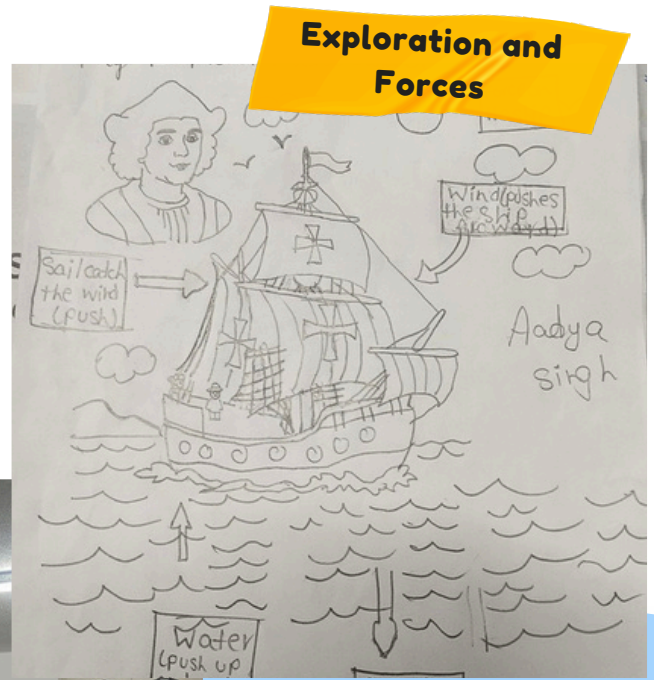 Exploration and
Forces
Wind(pushes
the ship
Sail catch
the wind
(push)
Aadya
singh
Water
(push up